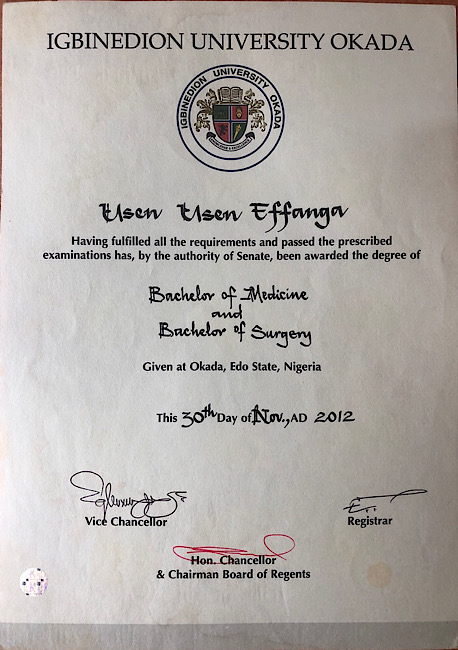 IGBINEDION UNIVERSITY OKADA
IGBINEDION UNIVERSITY, OKADA
Usen Usen Effanga
Having fulfilled all the requirements and passed the prescribed
examinations has, by the authority of Senate, been awarded the degree of
Bachelor of Medicine
and
Bachelor of Surgery
Given at Okada, Edo State, Nigeria
This 30th Day of Nov., AD 2012
Vice Chancellor
Registrar
Hon. Chancellor
& Chairman Board of Regents